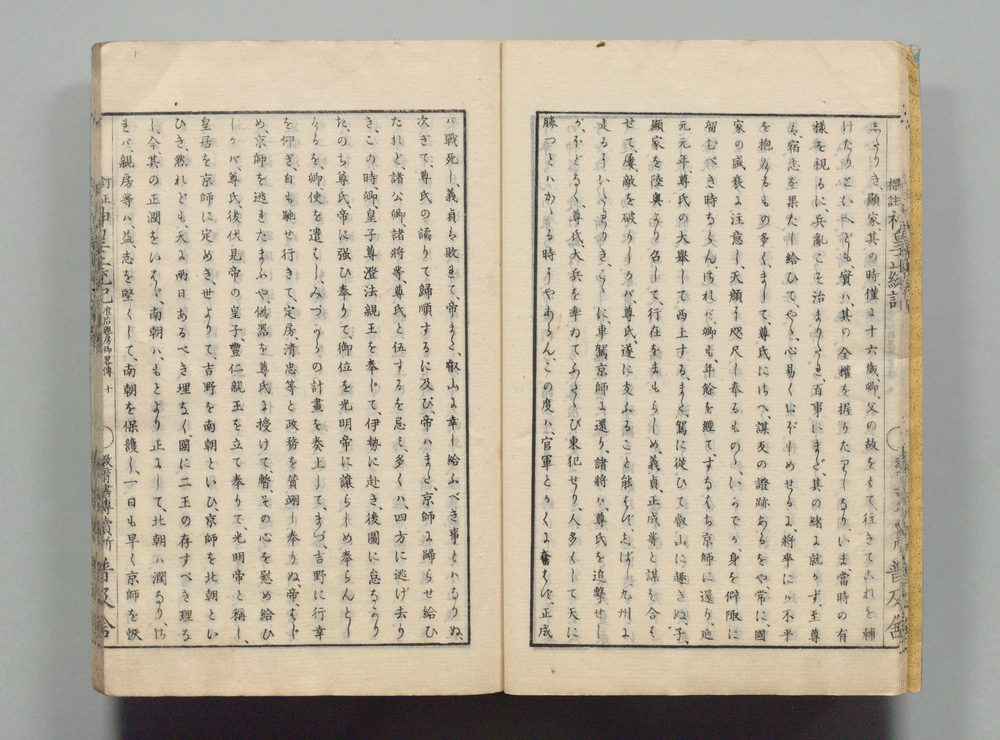 標註神皇正統記
普及舍
したりき、顯家其の時僅に十六歳、卿、父の故をもて往きてこれを輔
けたりといへども實ハ、其の全權を握りたりしなり、いま當時の有
樣を視るに、兵亂こそ治まりたれ、百事いまだ其の緒に就かず、至尊
宿志を果たし給ひてや、心易く
を抱くもの多く、まして、尊氏にはへ、謀反の證跡あるをや、常に、國
家の盛衰に注意し、天顔に咫尺し奉るもの、いかでか身を僻陬に
留むべき時ならんや、されバ卿も、年餘を經て、すなはち京師に還り、延
元元年、尊氏の大擧して西上する、また駕に從ひて叡山に趣きぬ、子
顯家を陸奥より召して、行在をまもらしめ、義貞、正成等と謀を合は
せて、屢敵を破りしかバ、尊氏、遂に支ふること能はず、しばし九州に
走る、車駕京師に還り、諸將ハ、尊氏を追撃せし
が、ほどなく、尊氏、大兵を率ゐてふたゝび東犯せり、人多くして天に
勝つとハかゝる時にやあらん、この度ハ、官軍とかくに奮はず、正成
ハ戰死し、義貞も敗れて、帝また、叡山に幸し給ふべき事とハなりぬ、
次ぎて、尊氏の譎りて歸順するに及び、帝ハまた、京師に歸らせ給ひ
たれど、諸公卿諸將等、尊氏と伍するを忌み、多くハ、四方に逃げ去り
き、この時、卿、皇子尊澄法親王を奉じて、伊勢に赴き、後圖に怠るなり
た、のち尊氏、帝に強ひ奉りて、御位を光明帝に讓らしめ奉らんとし
けるを、卿使を遣はし、みづからの計畫を奏上して、まづ、吉野に行幸
を仰ぎ、自も馳せ行きて、定房、清忠等と政務を賛翊し奉りぬ、帝、はじ
め、京師を逃れたまふや、僞器を尊氏に授けて、暫その心を慰め給ひ
しかバ、尊氏、後伏見帝の皇子、豐仁親王を立て奉りて、光明帝と稱し、
皇居を京師に定めき、世よりて、吉野を南朝といひ、京師を北朝とい
ひき、然れども、天に兩日あるべき理なく、國に二王の存すべき理な
し、今其の正潤をいはゞ、南朝ハ、もとより正にして、北朝ハ潤なり、さ
れバ、親房等ハ、益志を堅くして、南朝を保護し、一日も早く京師を恢
訂正神皇正統記 准后親房卿畧傳 十
敎育書專賣所 普及舍